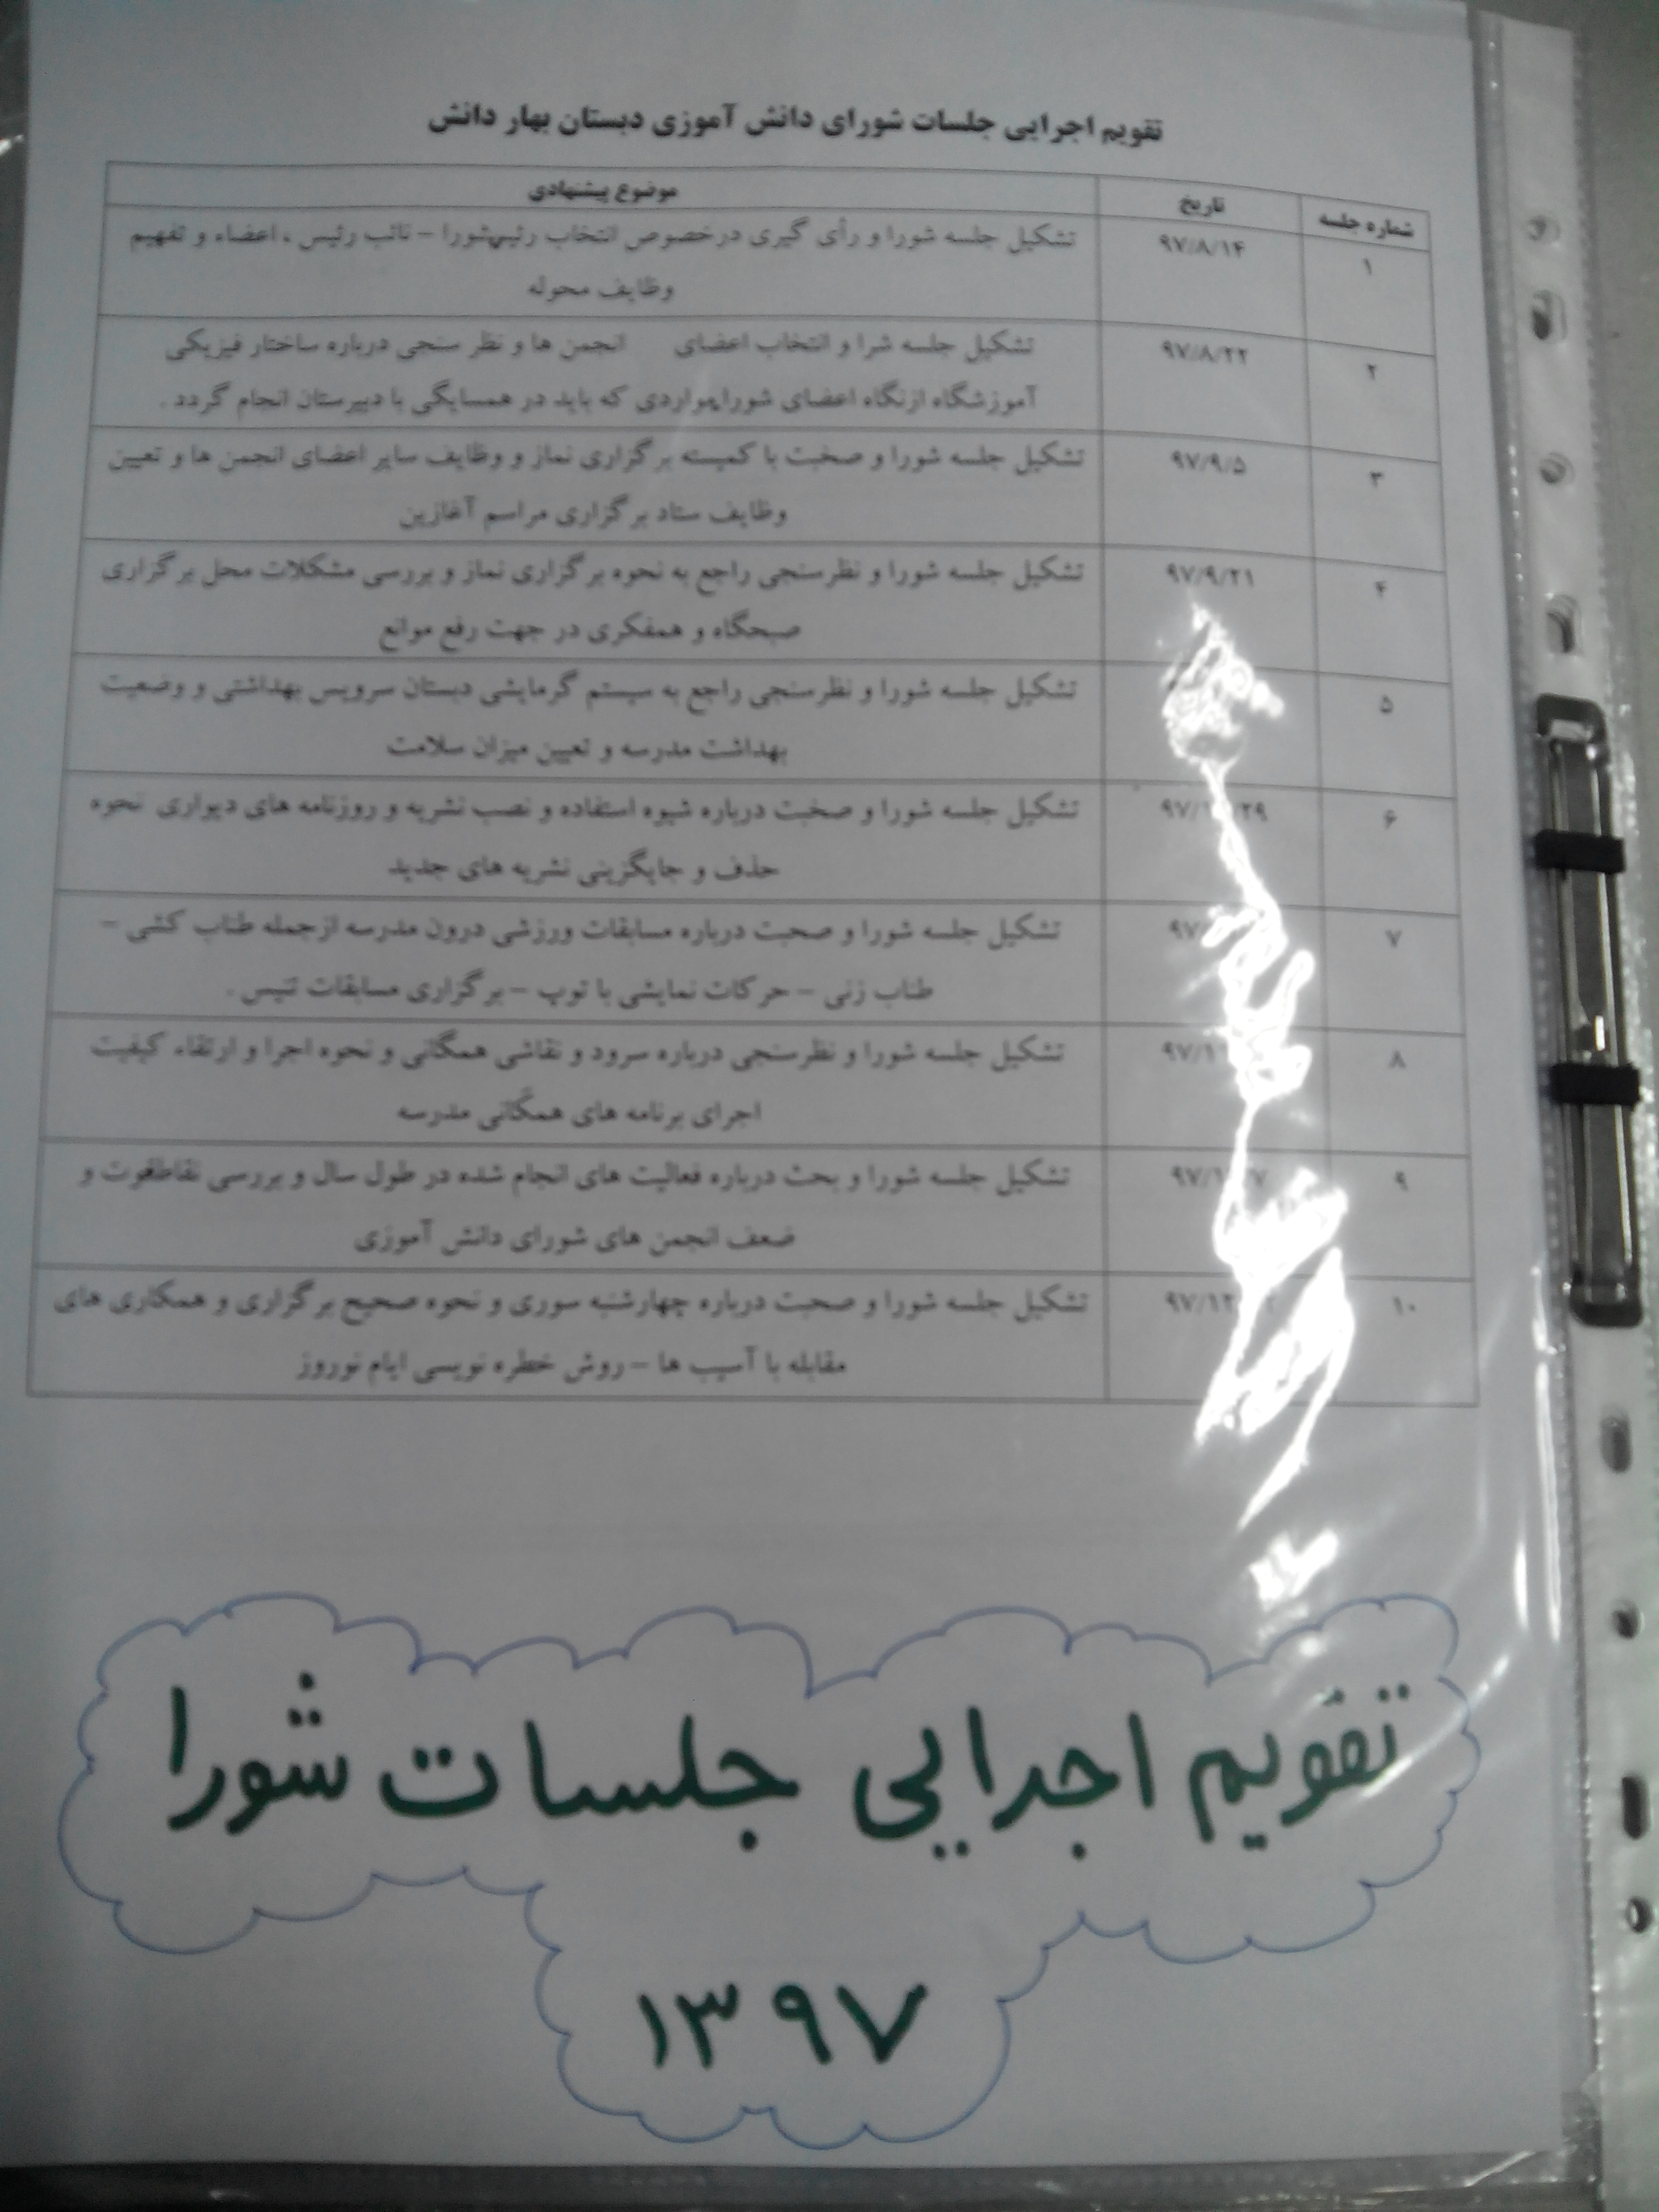 تقویم اجرایی جلسات شورای دانش آموزی دبستان بهار دانش
شماره جلسه تاریخ موضوع پیشنهادی
۱ ۹۷/۸/۱۴ تشکیل جلسه شورا و رأی گیری درخصوص انتخاب رئیس‌شورا – نائب رئیس ، اعضاء و تفهیم
وظایف محوله
۲ ۹۷/۸/۲۲ تشکیل جلسه شرا و انتخاب اعضای انجمن ها و نظر سنجی درباره ساختار فیزیکی
آموزشگاه ازنگاه اعضای شورا,مواردی که باید در همسایگی با دبیرستان انجام گردد .
۳ ۹۷/۹/۵ تشکیل جلسه شورا و صحبت با کمیسته برگزاری نماز و وظایف سایر اعضای انجمن ها و تعیین
وظایف ستاد برگزاری مراسم آغازین
۴ ۹۷/۹/۲۱ تشکیل جلسه شورا و نظرسنجی راجع به نحوه برگزاری نماز و بررسی مشکلات محل برگزاری
صبحگاه و همفکری در جهت رفع موانع
۵ تشکیل جلسه شورا و نظرسنجی راجع به سیستم گرمایشی دبستان سرویس بهداشتی و وضعیت
بهداشت مدرسه و تعیین میزان سلامت
۶ تشکیل جلسه شورا و صحبت درباره شیوه استفاده و نصب نشریه و روزنامه های دیواری نحوه
حذف و جایگزینی نشریه های جدید
۷ تشکیل جلسه شورا و صحبت درباره مسابقات ورزشی درون مدرسه ازجمله طناب کشی –
طناب زنی – حرکات نمایشی با توپ – برگزاری مسابقات تنیس .
۸ تشکیل جلسه شورا و نظرسنجی درباره سرود و نقاشی همگانی و نحوه اجرا و ارتقاء کیفیت
اجرای برنامه های همگانی مدرسه
۹ تشکیل جلسه شورا و بحث درباره فعالیت های انجام شده در طول سال و بررسی نقاطقوت و
ضعف انجمن های شورای دانش آموزی
۱۰ تشکیل جلسه شورا و صحبت درباره چهارشنبه سوری و نحوه صحیح برگزاری و همکاری های
مقابله با آسیب ها – روش خطره نویسی ایام نوروز
تقویم اجرایی جلسات شورا
۱۳۹۷